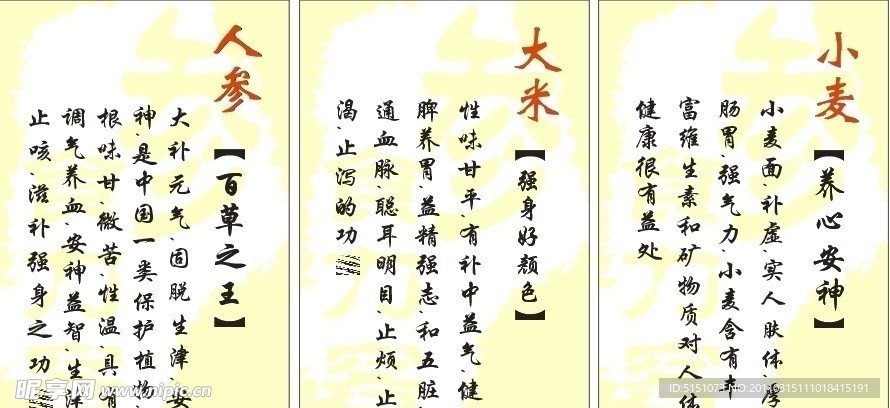 人参
【百草之王】
大补元气、固脱生津安
神、是中国一类保护植物、
根味甘、微苦、性温、具有
调气养血、安神益智、生津
止咳、滋补强身之功
大米
【强身好颜色】
性味甘平、有补中益气、健
脾养胃、益精强志、和五脏、
通血脉、聪耳明目、止烦、止
渴、止泻的功
小麦
【养心安神】
小麦面、补虚、实人肤体、厚
肠胃、强气力、小麦含有丰
富维生素和矿物质对人体
健康很有益处
昵享网 www.nipic.cn